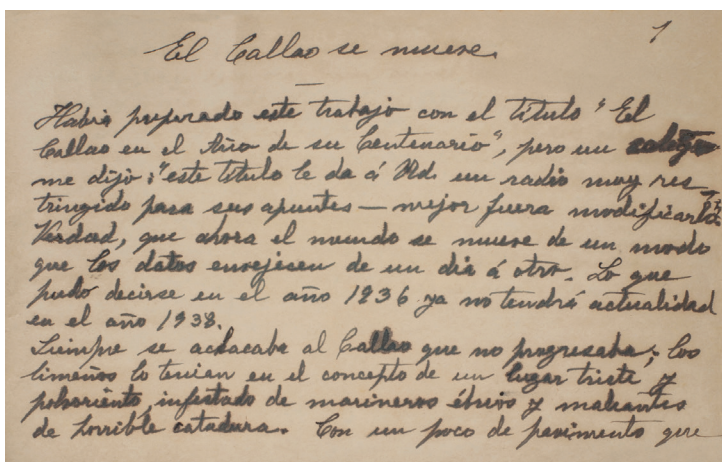 1
El Callao se mueve.
Habia preparado este trabajo con el titulo "El
Callao en el Año de su Centenario", pero un
me dijo: "este titulo le da á Ud. un radio muy res-
tringido para sus apuntes — mejor fuera modificarlo
Verdad, que ahora el mundo se mueve de un modo
que los datos envejecen de un dia á otro. Lo que
pudo decirse en el año 1936 ya no tendrá actualidad
en el año 1938.
Siempre se achacaba al Callao que no progresaba; los
limeños lo tenian en el concepto de un lugar triste y
polvoriento, infestado de marineros ébrios y maleantes
de horrible catadura. Con un poco de pavimento que